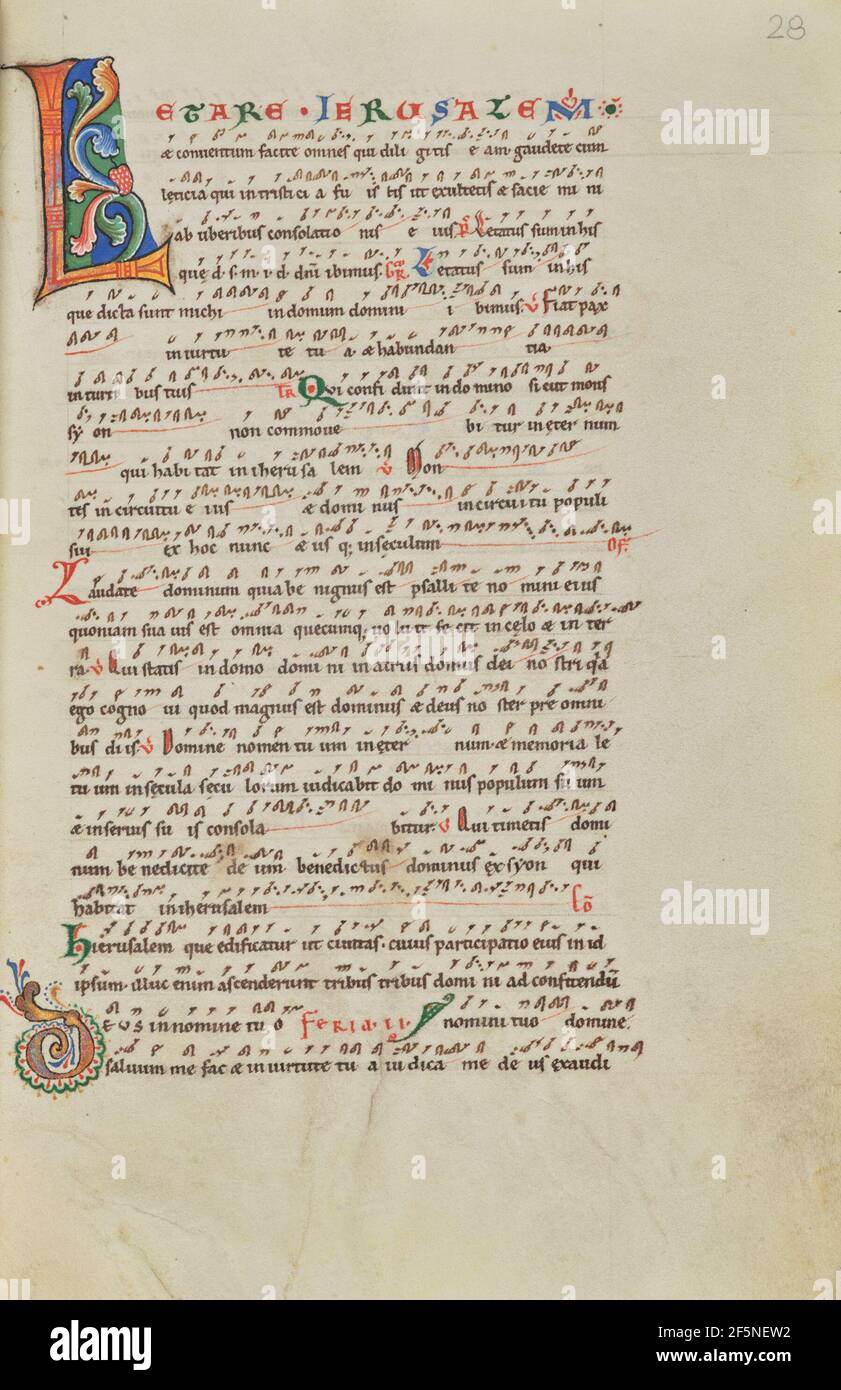 28
LETARE · IERUSALEM
æ conventum facite omnes qui dili gitis e am· gaudete cum
leticia qui in tristici a fu is tis ut exultetis æ sacie mi ni
ab uberibus consolatio nis e uis Letatus sum in his
que d· s· m· i· d· dnī ibimus· Letatus sum in his
que dicta sunt michi in domum domini i bimus· V Fiat pax
in uirtu te tu a æ habundan tia
in turri bus tuis TR Qvi confi dunt in do mino sicut mons
sy on non commove bi tur in ęter num
qui habi tat in iherusa lem V Mon
tes in circuitu e ius æ domi nus in circui tu populi
sui ex hoc nunc æ us q; in seculum OF
Laudate dominum quia be nignus est psalli te no mini eius
quoniam sua uis est omnia quecumq; uo lu it fe cit in celo æ in ter
ra· V Qui statis in domo domi ni in atriis domus dei no stri q̄a
ego cogno ui quod magnus est dominus æ deus no ster pre omni
bus di is· V Domine nomen tu um in ęter num· æ memoria le
tu um in sęcula sęcu lorum iudicabit do mi nus populum su um
æ in seruis su is consola bitur· V Qui timetis domi
num be nedicite de um· benedictus dominus ex syon qui
habitat in iherusalem cō
hierusalem que edificatur ut ciuitas· cuius participatio eius in id
ipsum· illuc enim ascenderunt tribus tribus domi ni ad confitendū
DEUS in nomine tu o FERIA· II· P nomini tuo domine·
salvum me fac æ in uirtute tu a iu dica me de us exaudi
alamy
Image ID: 2F5NEW2
www.alamy.com